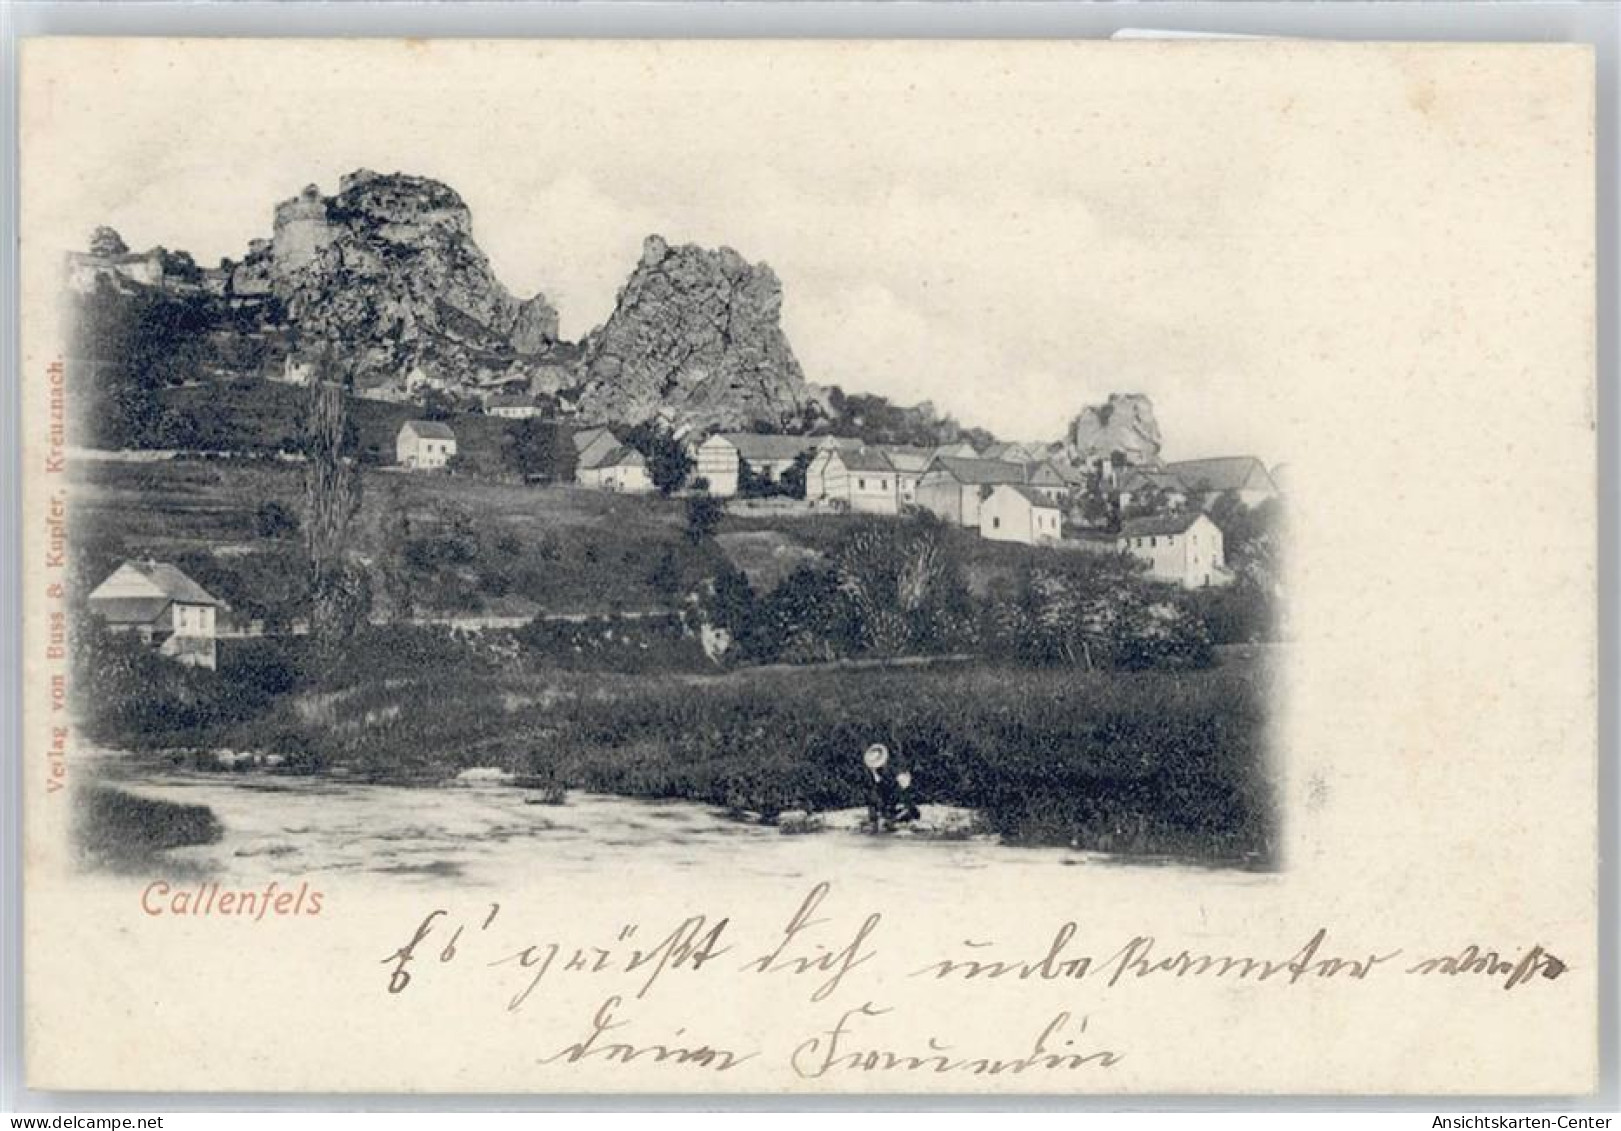 Verlag von Buss & Kupfer, Kreuznach.
Callenfels
Es grüßt Dich unbekannter weise
deine Freundin
Ansichtskarten-Center
www.delcampe.net